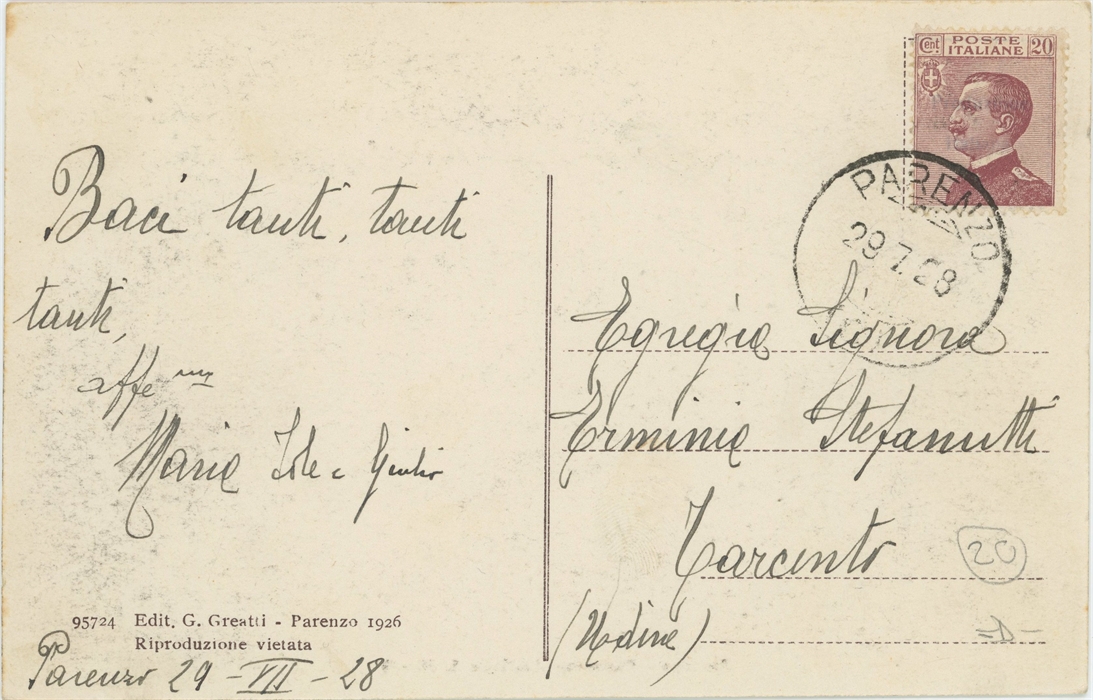 Cent POSTE ITALIANE 20
PARENZO
29.7.28
Baci tanti, tanti
tanti,
affe mi
Maria Iole e Giulio
Egregia Signora
Erminia Stefanutti
Tarcento
(Udine)
20
=D-
95724 Edit. G. Greatti - Parenzo 1926
Riproduzione vietata
Parenzo 29 - VII - 28